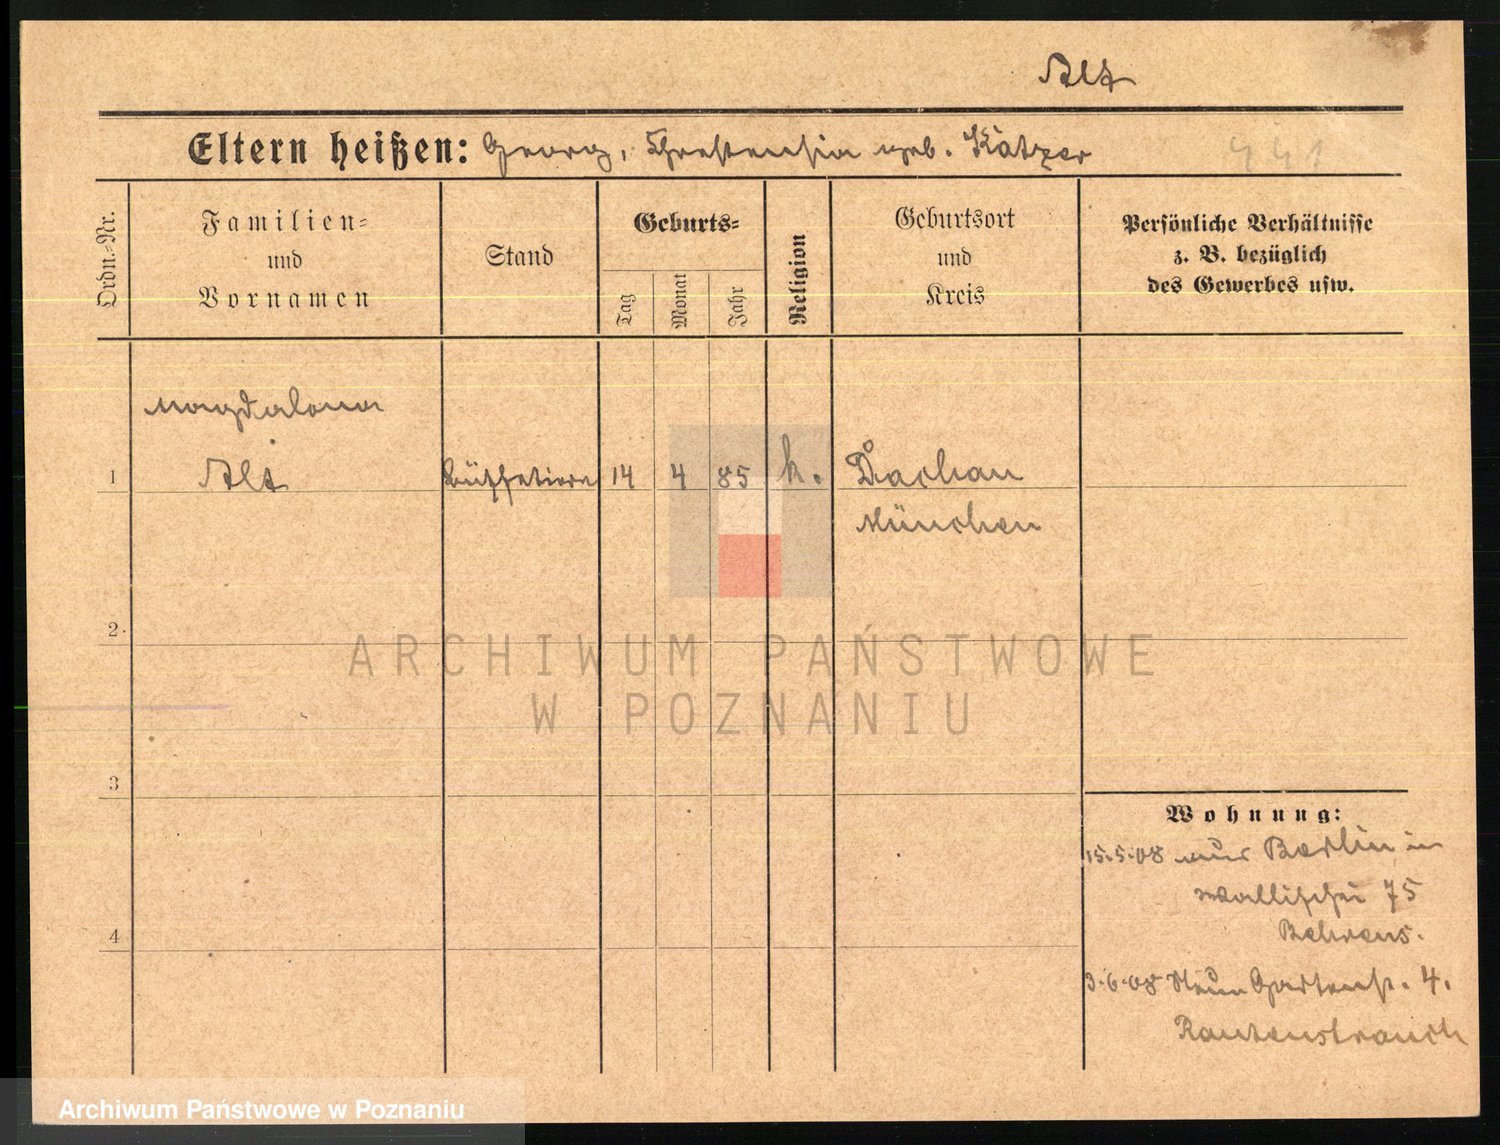 Alt
Eltern heißen: Georg, Kreszensia geb. Kätzer
441
Ordn.=Nr.
Familien=
und
Vornamen
Stand
Geburts=
Tag
Monat
Jahr
Religion
Geburtsort
und
Kreis
Persönliche Verhältnisse
z. B. bezüglich
des Gewerbes usw.
Magdalena
1 Alt Büffetiere 14 4 85 k. Dachau
München
2.
3
4
Wohnung:
15.5.08 aus Berlin in
Wallischei 75
Behrens.
3.6.08 Neue Gartenst. 4.
Rautenstrauch
ARCHIWUM PAŃSTWOWE
W POZNANIU
Archiwum Państwowe w Poznaniu